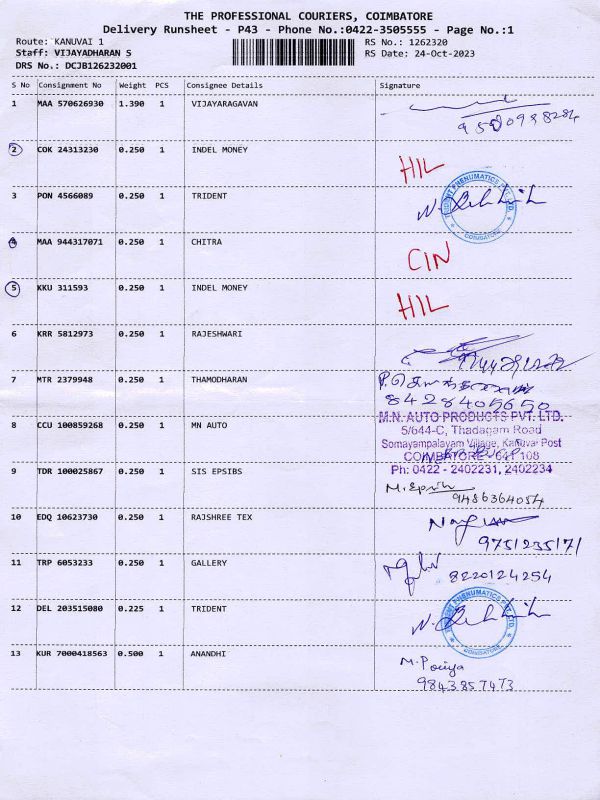 THE PROFESSIONAL COURIERS, COIMBATORE
Delivery Runsheet - P43 - Phone No.:0422-3505555 - Page No.:1
Route: KANUVAI 1
RS No.: 1262320
Staff: VIJAYADHARAN S
RS Date: 24-Oct-2023
DRS No.: DCJB126232001
S No Consignment No Weight PCS Consignee Details Signature
1 MAA 570626930 1.390 1 VIJAYARAGAVAN
2 COK 24313230 0.250 1 INDEL MONEY
HIL
3 PON 4566089 0.250 1 TRIDENT
COIMBATORE
4 MAA 944317071 0.250 1 CHITRA
CIN
5 KKU 311593 0.250 1 INDEL MONEY
HIL
6 KRR 5812973 0.250 1 RAJESHWARI
7 MTR 2379948 0.250 1 THAMODHARAN
8428405650
8 CCU 100859268 0.250 1 MN AUTO
M.N. AUTO PRODUCTS PVT. LTD.
5/644-C, Thadagam Road
Somayampalayam Village, Kanuvai Post
COIMBATORE - 641 108
Ph: 0422 - 2402231, 2402234
9 TDR 100025867 0.250 1 SIS EPSIBS
9486364054
10 EDQ 10623730 0.250 1 RAJSHREE TEX
9751235171
11 TRP 6053233 0.250 1 GALLERY
8220124254
12 DEL 203515080 0.225 1 TRIDENT
COIMBATORE
13 KUR 7000418563 0.500 1 ANANDHI
M. Poriya
9843857473